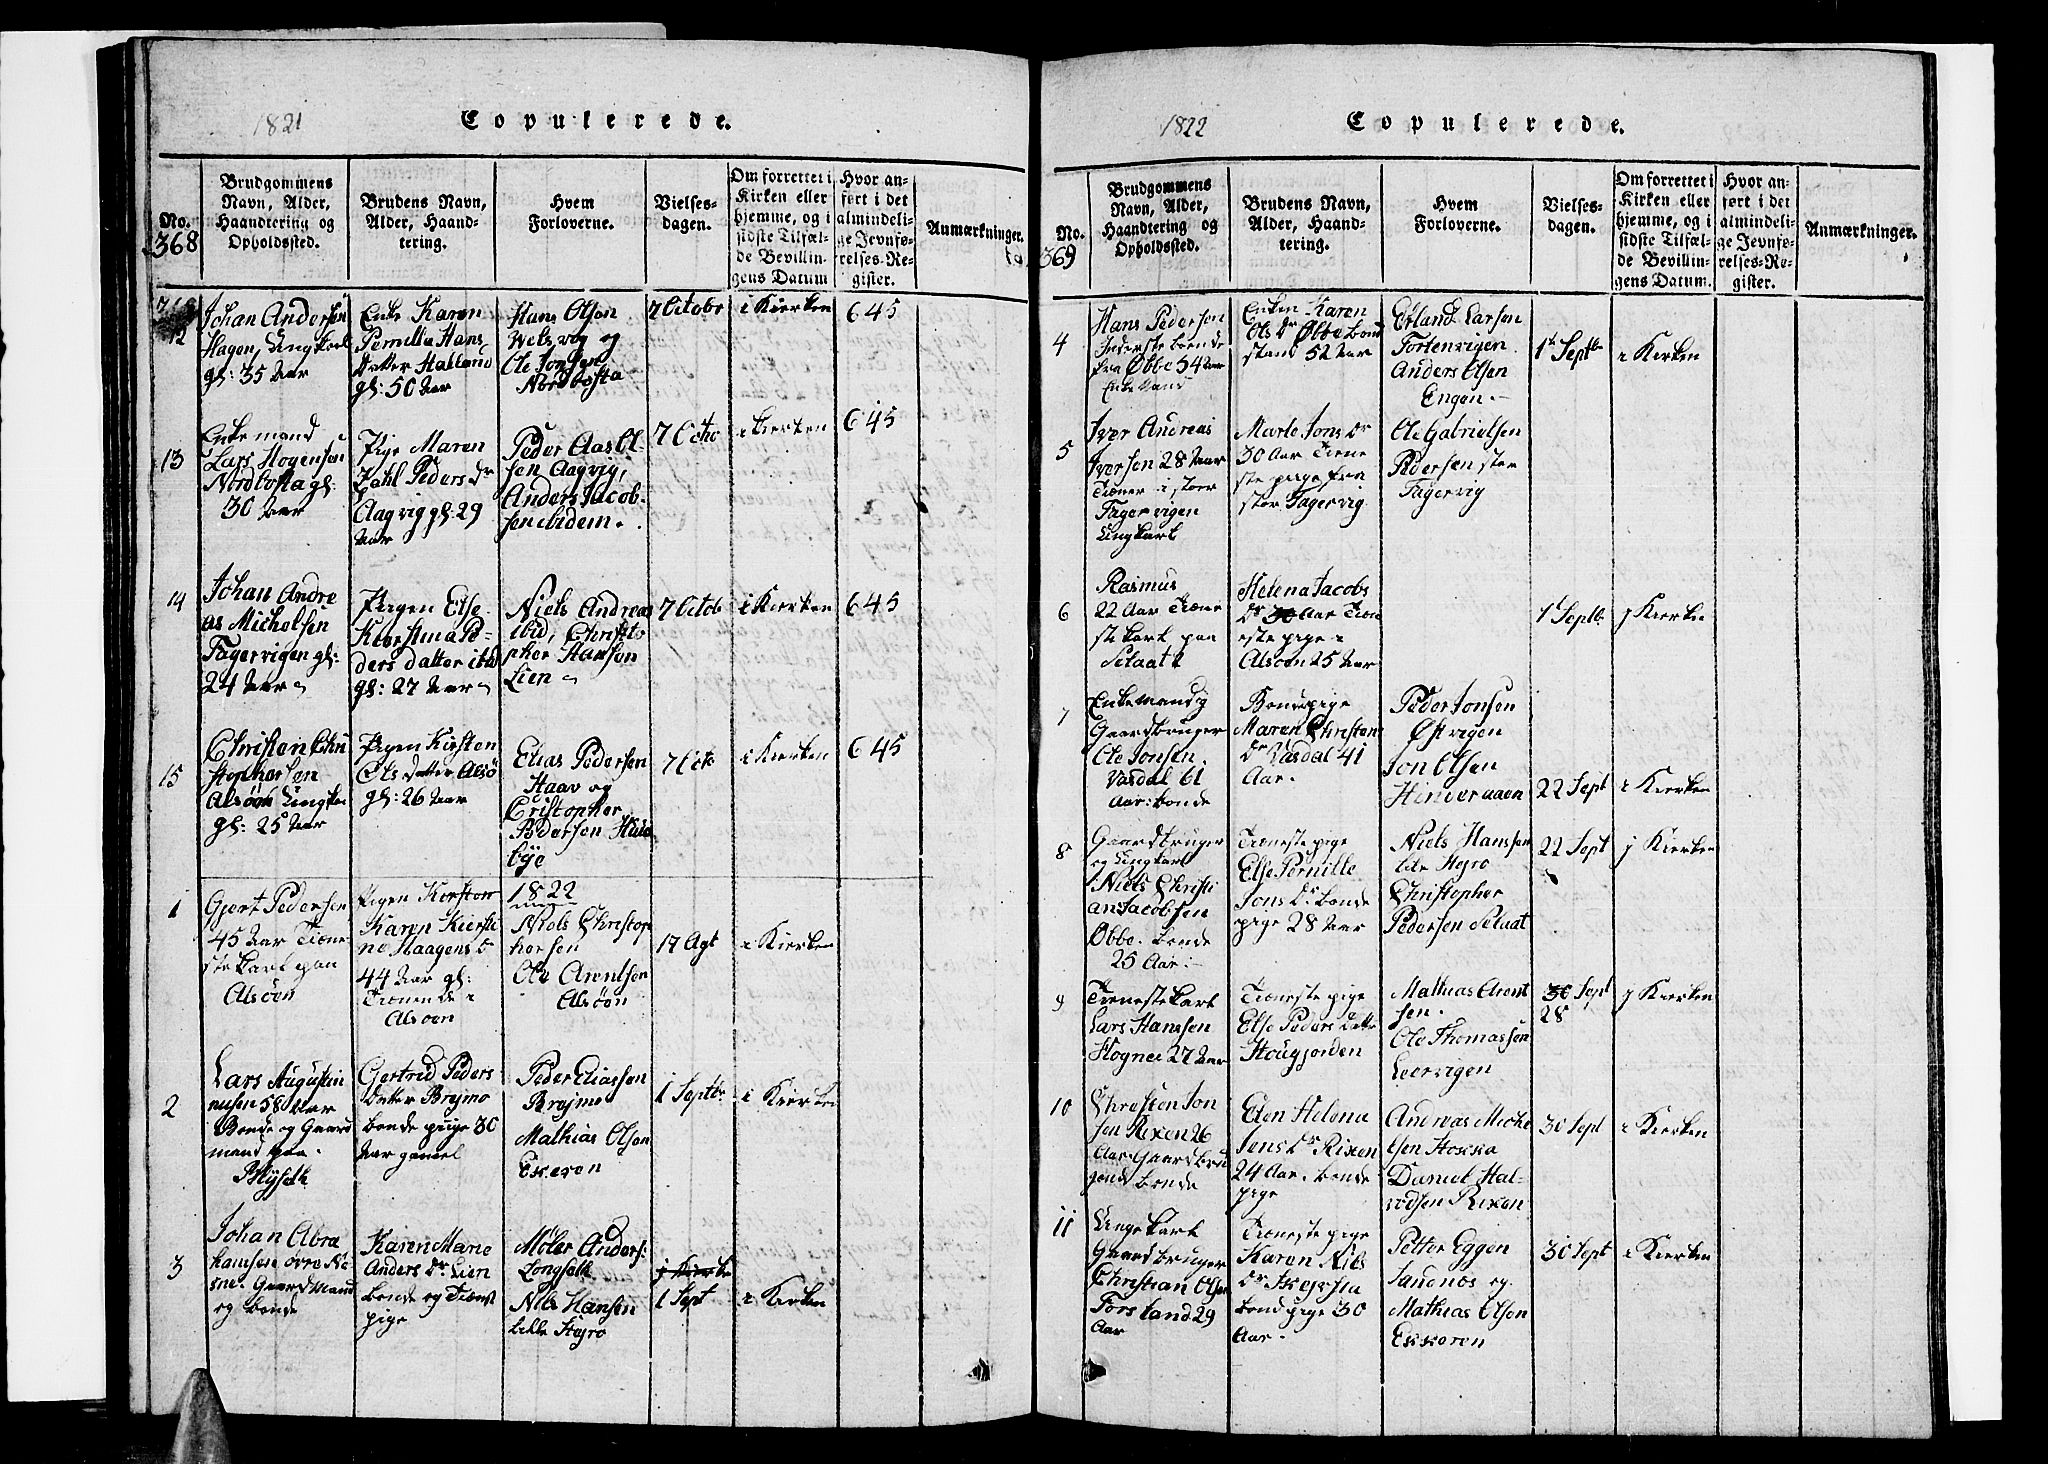 1821
Copulerede.
No.
368
Brudgommens
Navn, Alder,
Haandtering og
Opholdssted.
Brudens Navn,
Alder, Haand-
tering.
Hvem
Forloverne.
Vielses-
dagen.
Om forrettet i
Kirken eller
hjemme, og i
sidste Tilfæl-
de Bevillin-
gens Datum
Hvor an-
ført i det
almindeli-
ge Jevnfø-
relses-Re-
gister.
Anmærkninger.
12
Johan Andersen
Hagen, Ungkarl
gl: 35 Aar
Enke Karen
Pernille Hans
datter Haland
gl: 50 Aar
Hans Olson
Welsvig og
Ole Jonsen
Nordbosta
7 Octobr
i Kierken
645
13
Enkemand
Lars Mogensen
Nordbosta gl:
30 Aar
Pige Maren
Dahl Peders dr
Aagvig gl: 29
Aar
Peder Aas Ol
sen Aagvig,
Anders Jacob-
sen ibidem.
7 Octo
i Kierken
645
14
Johan Andre
as Michelsen
Fagervigen gl:
24 Aar
Pigen Else
Kierstina Pe-
ders datter ibid
gl: 27 Aar
Niels Andreas
ibid, Christo
pher Hanson
Lien
7 Octob
i Kierken
645
15
Christen Chri
stophersen
Alsöen Ungka
gl: 25 Aar
Pigen Kirsten
Ols datter Alsö
gl: 26 Aar
Elias Pedersen
Haav og
Cristopher
Pedersen Huse
bye
7 Octo
i Kierken
645
1
Gjert Pedersen
45 Aar Tiene
ste karl paa
Alsöen
Pigen Kersten
Karen Kiersti
ne Haagens dr
44 Aar gl:
Tienende i
Alsoen
1822
Niels Christop
hersen
Ole Arentsen
Alsöen
17 Agt
i Kierken
2
Lars Augustin
nusen 58 Aar
Bonde og Gaard
mand paa
Myseth
Gertrud Peders
datter Brejmo
bonde pige 30
Aar gamel
Peder Eliassen
Brejmo
Mathias Olsen
Exeren
1 Septbr
i Kierken
3
Johan Abra
hamsen øvre Næ
sne. Gaardmand
og bonde
Karen Marie
Anders dr Lien
bonde og Tienst
pige
Møler Anders:
Longseth
Nils Hansen
lille Hejro
i Kierke
1 Sept
i Kierken
1822
Copulerede.
No.
369
Brudgommens
Navn, Alder,
Haandtering og
Opholdssted.
Brudens Navn,
Alder, Haand-
tering.
Hvem
Forloverne.
Vielses-
dagen.
Om forrettet i
Kirken eller
hjemme, og i
sidste Tilfæl-
de Bevillin-
gens Datum.
Hvor an-
ført i det
almindeli-
ge Jevnfø-
relses-Re-
gister.
Anmærkninger.
4
Hans Pedersen
Inderste bonde
fra Øbbe 54 Aar
Enke Mand
Enken Karen
Ols dr Øbbe bond
stand 52 Aar
Erland Larsen
Tortenvigen
Anders Olsen
Engen.
1 Septbr
i Kierken
5
Iver Andreas
Iversen 28 Aar
Tiener i stoer
Fagervigen
Ungkarl
Marte Jons dr
30 Aar Tiene
ste pige fra
stor Fagervig
Ole Gabrielsen
Pedersen stor
Fagervig
6
Rasmus
22 Aar Tiene
ste karl paa
Selaatt
Helena Jacobs
dr 30 Aar Tien
este pige i
Alsoen 25 Aar
1 Septbr
j Kierken
7
Enkemand og
Gaardbruger
Ole Jonsen
Vasdal 61
Aar: bonde
Bondepige
Maren Christens
dr Vasdal 41
Aar.
Peder Jonsen
Østvigen
Jon Olsen
Hinderaaen
22 Sept
i Kierken
8
Gaardbruger
og Ungkarl
Niels Christi
an Jacobsen
Øbbe. bonde
25 Aar:
Tieneste pige
Else Pernille
Jons dr bonde
pige 28 Aar
Niels Hanssen
lille Hejro
Christopher
Pedersen Selaat
22 Sept
j Kierken
9
Tienestekarl
Lars Hanssen
Hognes 27 Aar
Tieneste pige
Else Peders datter
Hougjorden
Mathias Arent
sen.
Ole Thomassen
Leervigen
30 Sept
28
j Kierken
10
Christen Jon
sen Rixen 26
Aar Gaardbru
gend bonde
Elen Helena
Jens dr Rixen
24 Aar. bonde
pige
Andreas Miche
lsen Hoxxa
Daniel Hal-
vodsen Rixen
30 Sept
i Kierken
11
Unge karl
Gaardbruger
Christian Olsen
Forsland 29
Aar
Tieneste pige
Karen Nils
dr Skejxsta
bond pige 30
Aar.
Petter Eggen
Sandnos og
Mathias Olsen
Exxeren
30 Sept
i Kierken